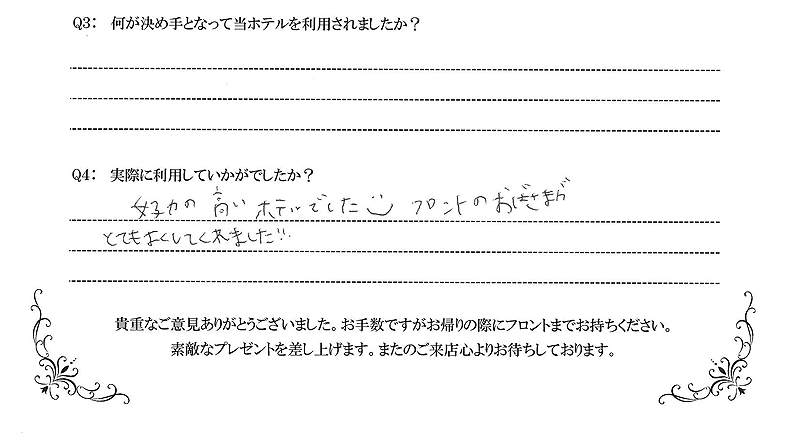 Q3: 何が決め手となって当ホテルを利用されましたか?
Q4: 実際に利用していかがでしたか?
女子力の高いホテルでした フロントのおばさまが
とてもよくしてくれました!!
貴重なご意見ありがとうございました。お手数ですがお帰りの際にフロントまでお持ちください。
素敵なプレゼントを差し上げます。またのご来店心よりお待ちしております。